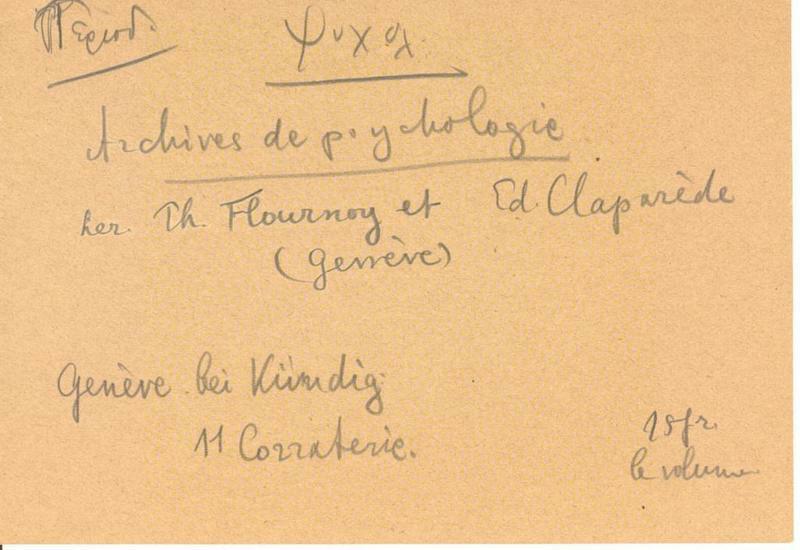 Περιοδ. ψυχολ.
Archives de psychologie
her. Th. Flournoy et Ed. Claparède
(Genève)
Genève bei Kündig
11 Corraterie.
15 fr.
le volume